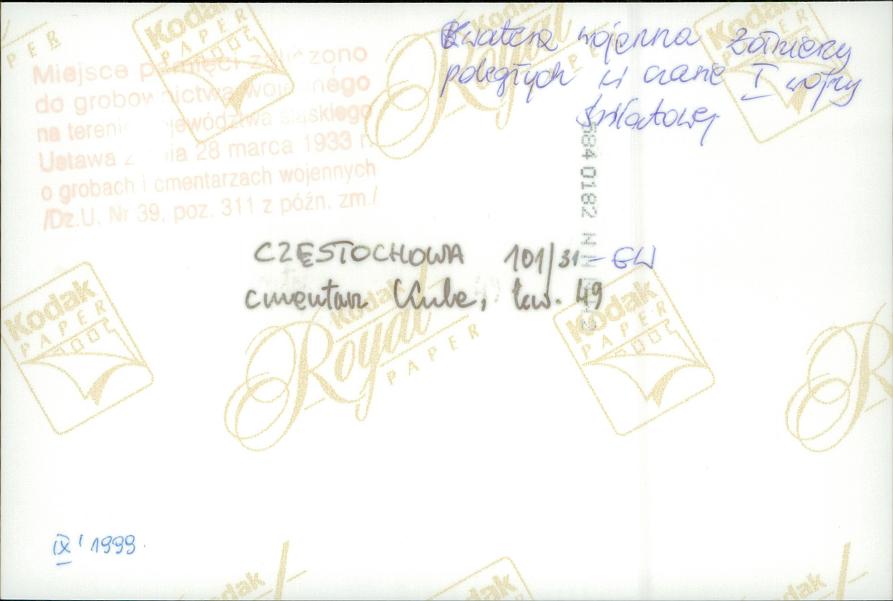 Kwatera wojenna żołnierzy
poległych w czasie I wojny
światowej
Miejsce pamięci zaliczono
do grobownictwa wojennego
na terenie województwa śląskiego
Ustawa z dnia 28 marca 1933 r.
o grobach i cmentarzach wojennych
/Dz.U. Nr 39, poz. 311 z późn. zm./
CZĘSTOCHOWA 101/31-GW
cmentarz Kule, kw. 49
IX' 1999.
Kodak
PAPER
Kodak
Royal
PAPER